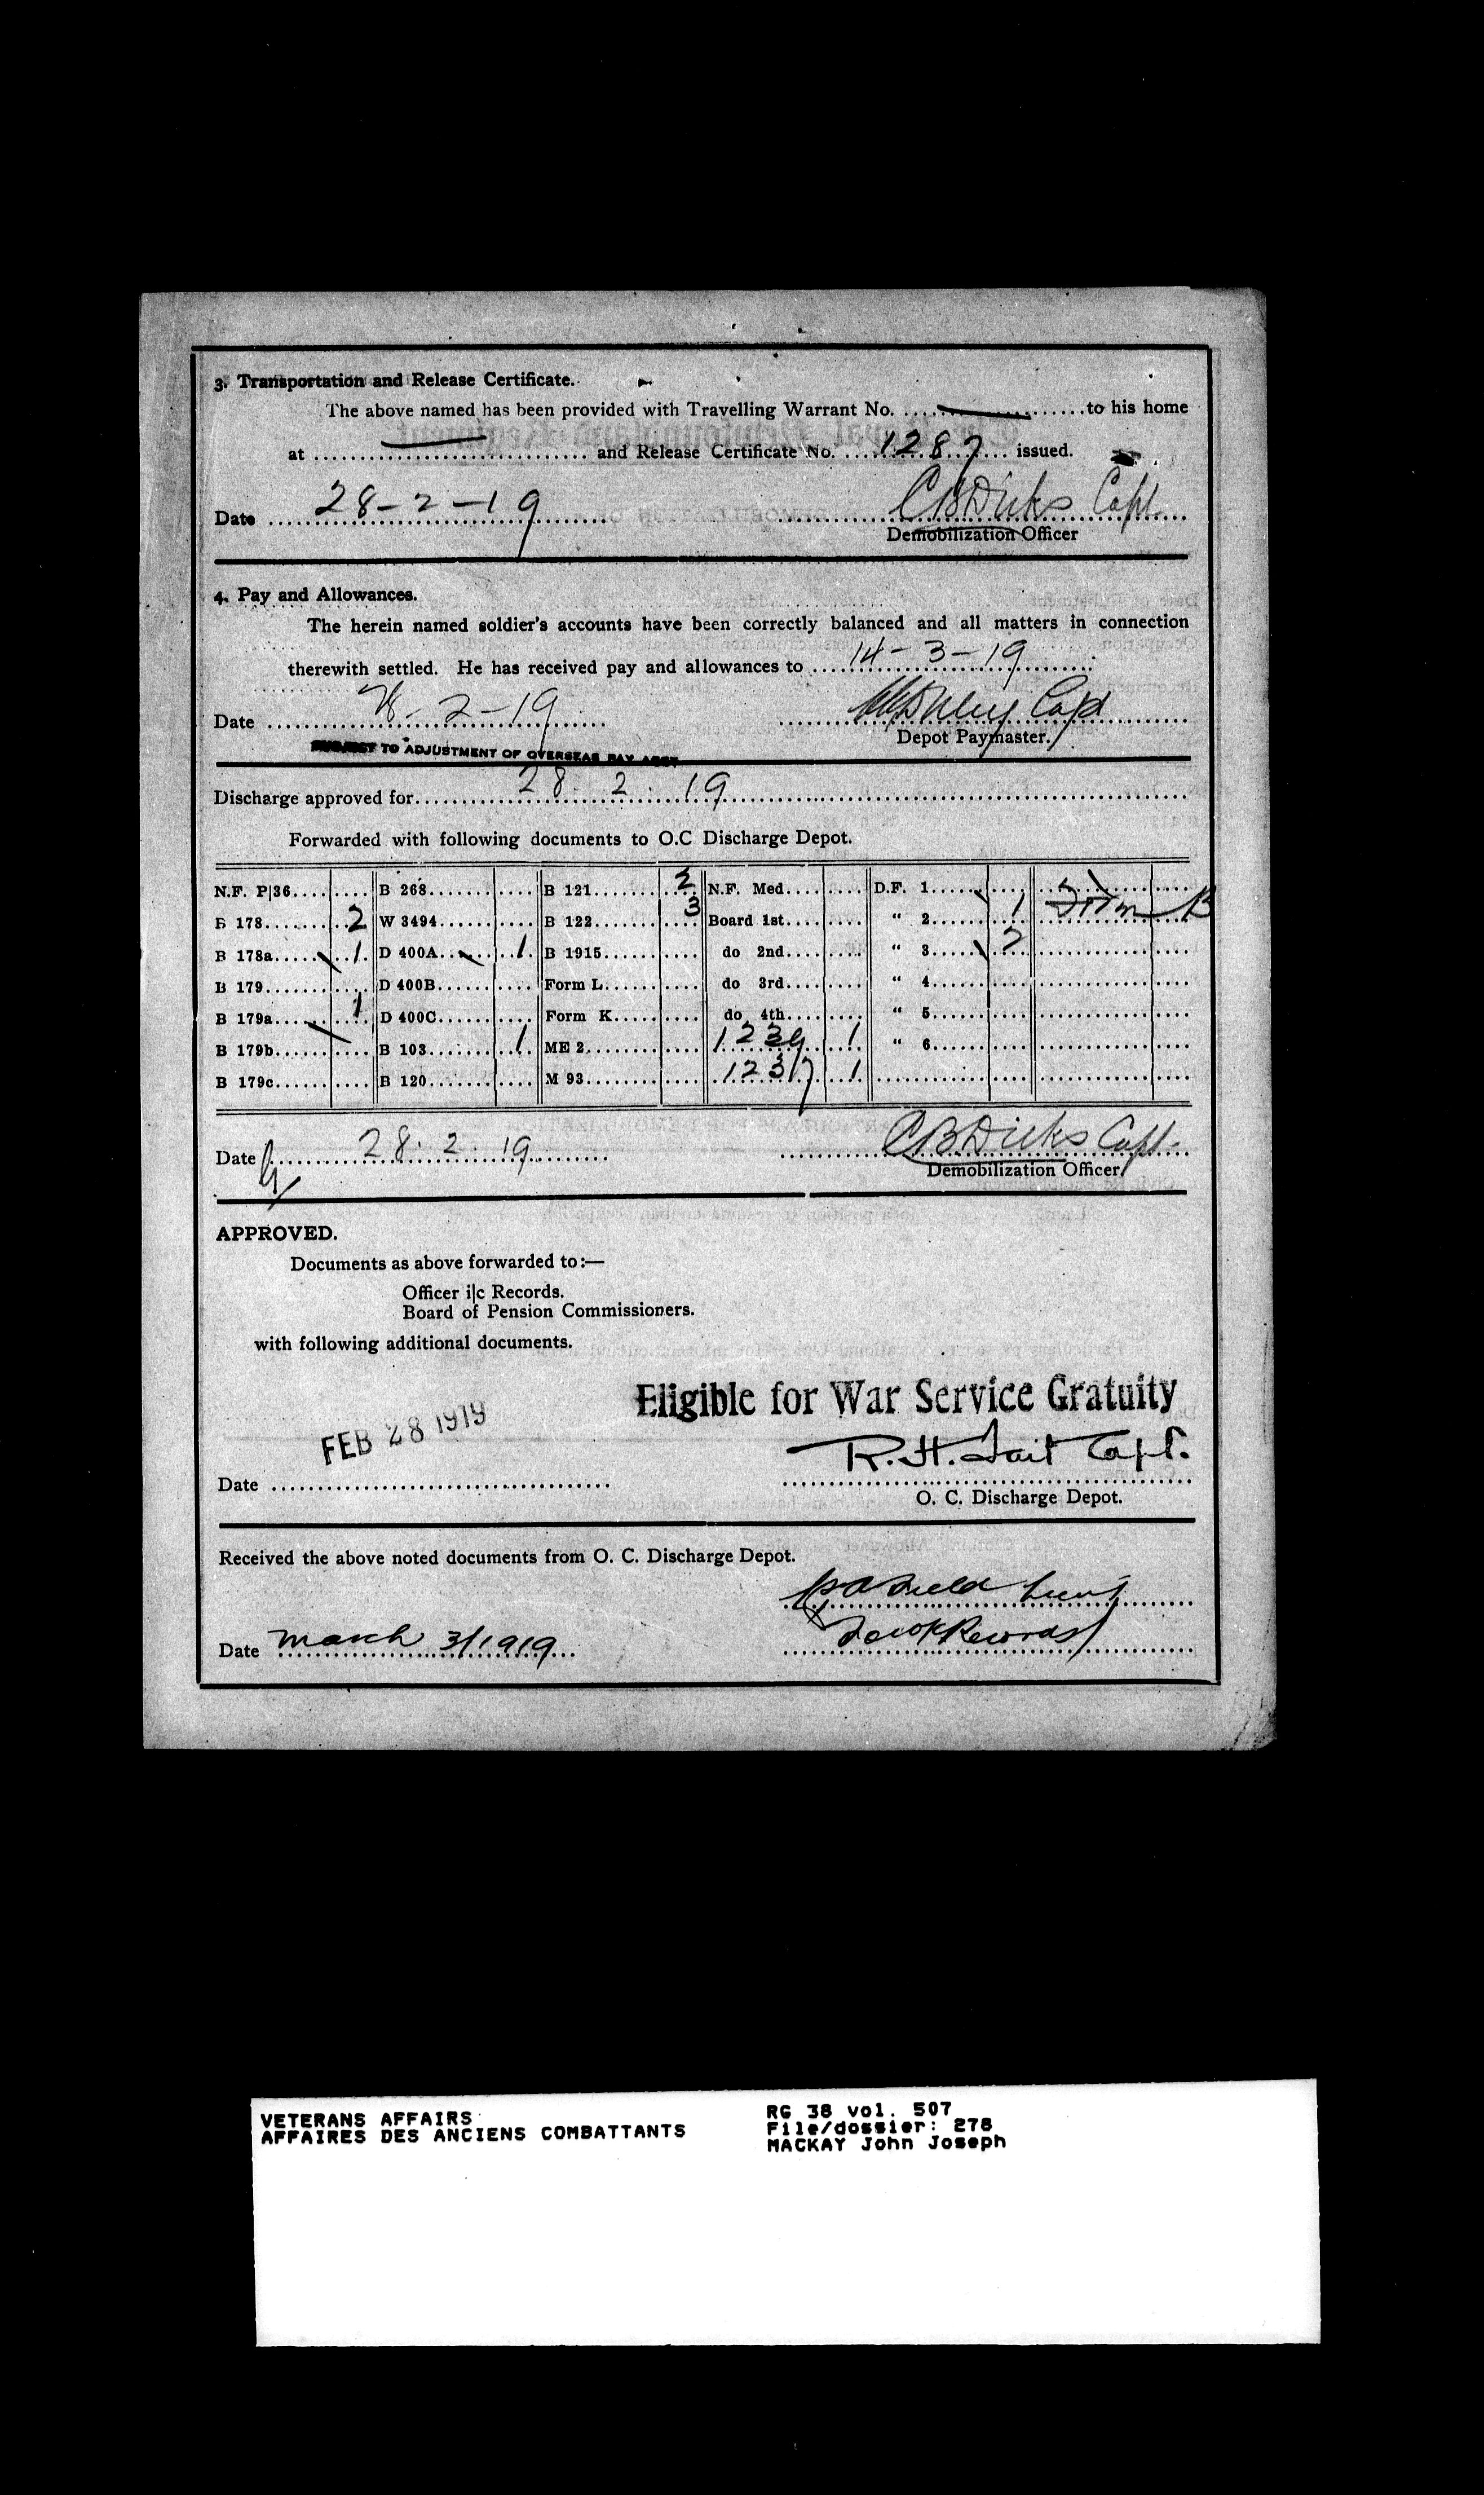 3. Transportation and Release Certificate.
The above named has been provided with Travelling Warrant No. .................... to his home
at .................... and Release Certificate No. 1287 issued.
Date 28-2-19 CBDicks Capt.
Demobilization Officer
4. Pay and Allowances.
The herein named soldier's accounts have been correctly balanced and all matters in connection
therewith settled. He has received pay and allowances to 14-3-19
Date 28-2-19 Capt
Depot Paymaster.
SUBJECT TO ADJUSTMENT OF OVERSEAS PAY ACCT
Discharge approved for 28. 2. 19
Forwarded with following documents to O.C Discharge Depot.
N.F. P|36 B 268 B 121 2 N.F. Med. D.F. 1
B 178 2 W 3494 B 122 3 Board 1st " 2 1 Form B
B 178a 1 D 400A 1 B 1915 do 2nd " 3 2
B 179 D 400B Form L do 3rd " 4
B 179a 1 D 400C Form K do 4th " 5
B 179b B 103 1 ME 2 1 " 6
B 179c B 120 M 93 1237 1
Date 28. 2. 19 CBDicks Capt.
Demobilization Officer
APPROVED.
Documents as above forwarded to:—
Officer i|c Records.
Board of Pension Commissioners.
with following additional documents.
Eligible for War Service Gratuity
FEB 28 1919
R.H. Tait Capt.
Date
O. C. Discharge Depot.
Received the above noted documents from O. C. Discharge Depot.
Date March 3/1919 Records
VETERANS AFFAIRS RG 38 vol. 507
AFFAIRES DES ANCIENS COMBATTANTS File/dossier: 278
MACKAY John Joseph